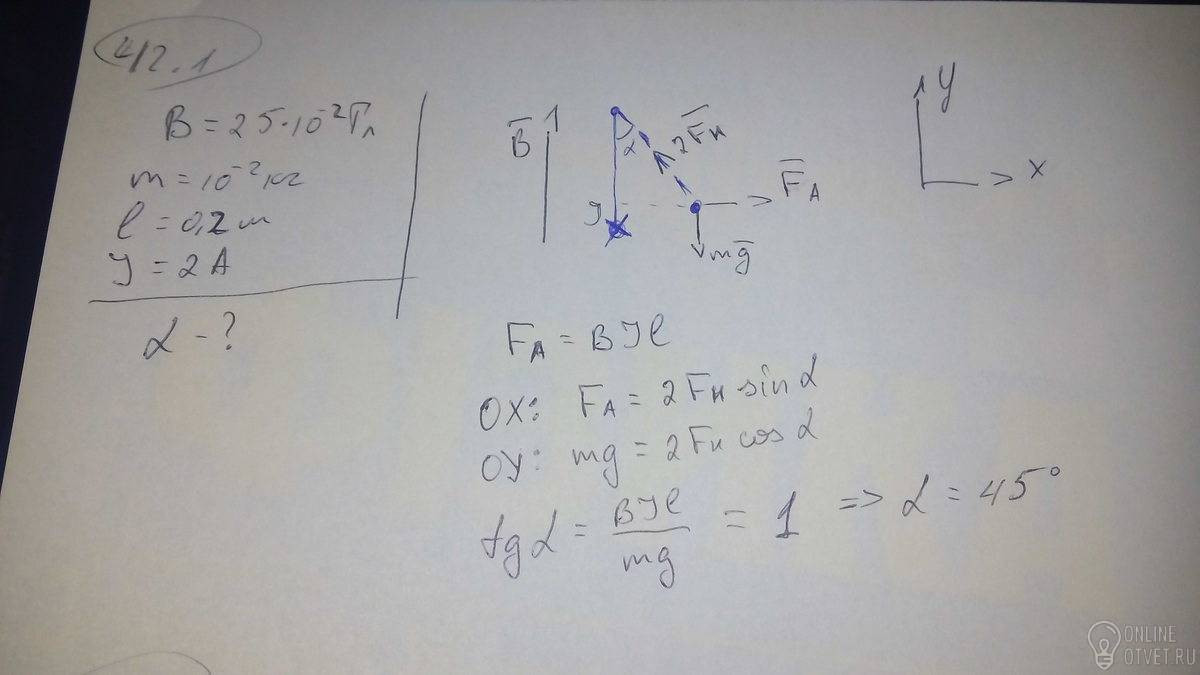 412.1
B = 25·10⁻² Тл
m = 10⁻² кг
l = 0,2 м
J = 2 А
α - ?
B
α
2Fн
J
FА
mg
y
x
FА = BJl
OX: FА = 2Fн sin α
OY: mg = 2Fн cos α
tg α = BJl / mg = 1 => α = 45°
ONLINE
OTVET.RU